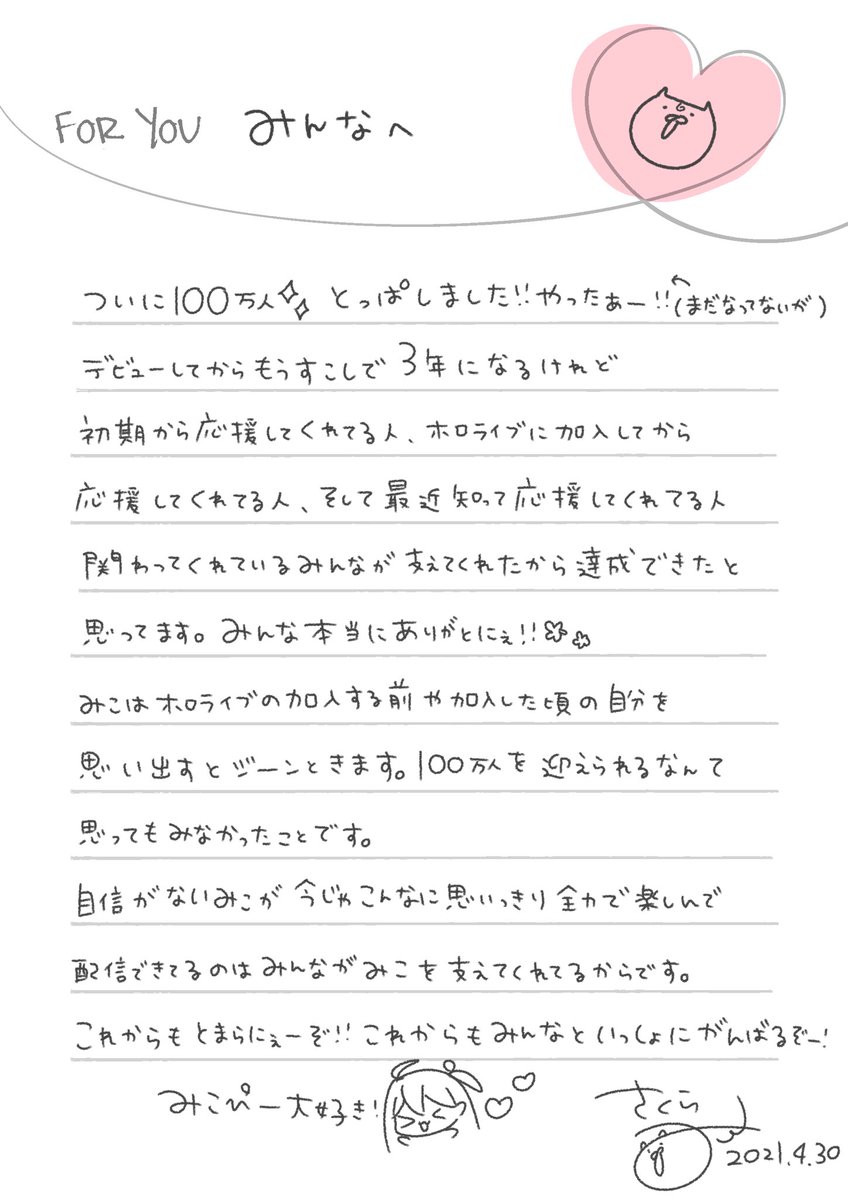 FOR YOU みんなへ
ついに100万人とっぱしました!!やったぁー!!(まだなってないが)
デビューしてからもうすこしで3年になるけれど
初期から応援してくれてる人、ホロライブに加入してから
応援してくれてる人、そして最近知って応援してくれてる人
関わってくれているみんなが支えてくれたから達成できたと
思ってます。みんな本当にありがとにぇ!!
みこはホロライブの加入する前や加入した頃の自分を
思い出すとジーンときます。100万人を迎えられるなんて
思ってもみなかったことです。
自信がないみこが今じゃこんなに思いっきり全力で楽しんで
配信できてるのはみんながみこを支えてくれてるからです。
これからもとまらにぇーぞ!!これからもみんなといっしょにがんばるぞー!
みこぴー大好き!
さくら
2021.4.30